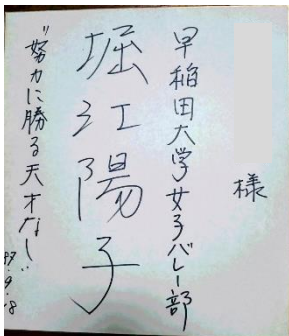 様
早稲田大学女子バレー部
堀江陽子
"努力に勝る天才なし"
97.9.18